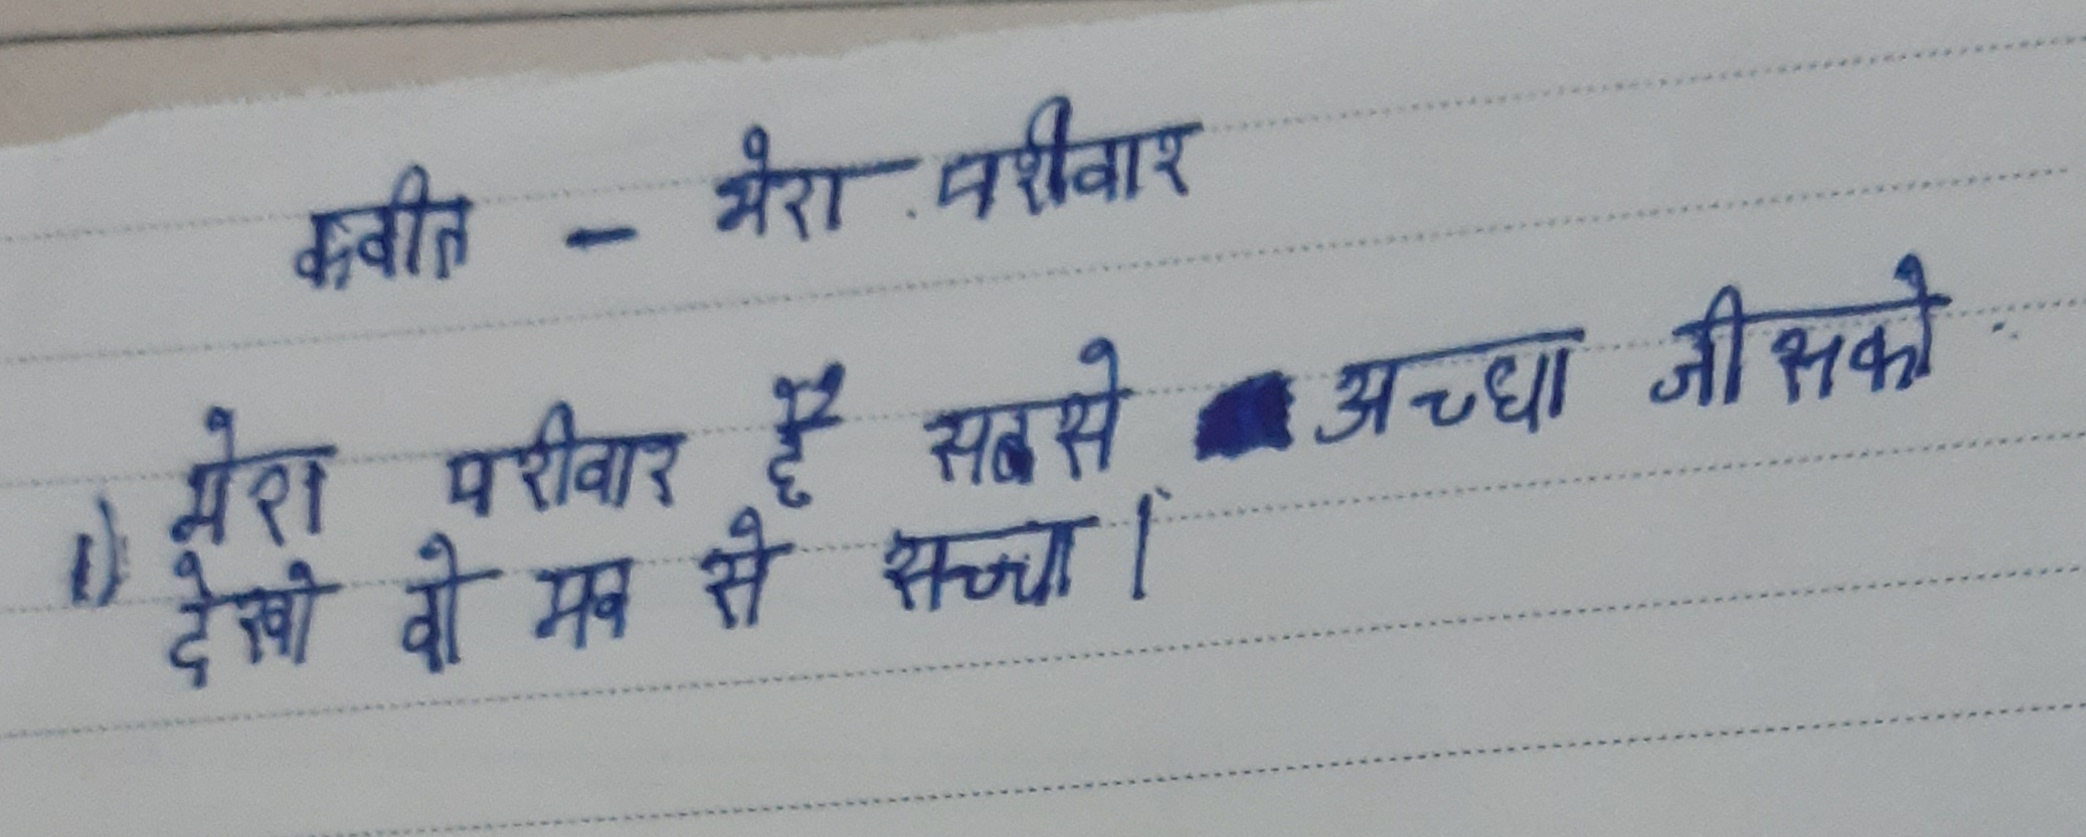 कवीत - मेरा परीवार
1) मेरा परीवार है सबसे अच्धा जीसको
देखो वो सब से सच्चा।